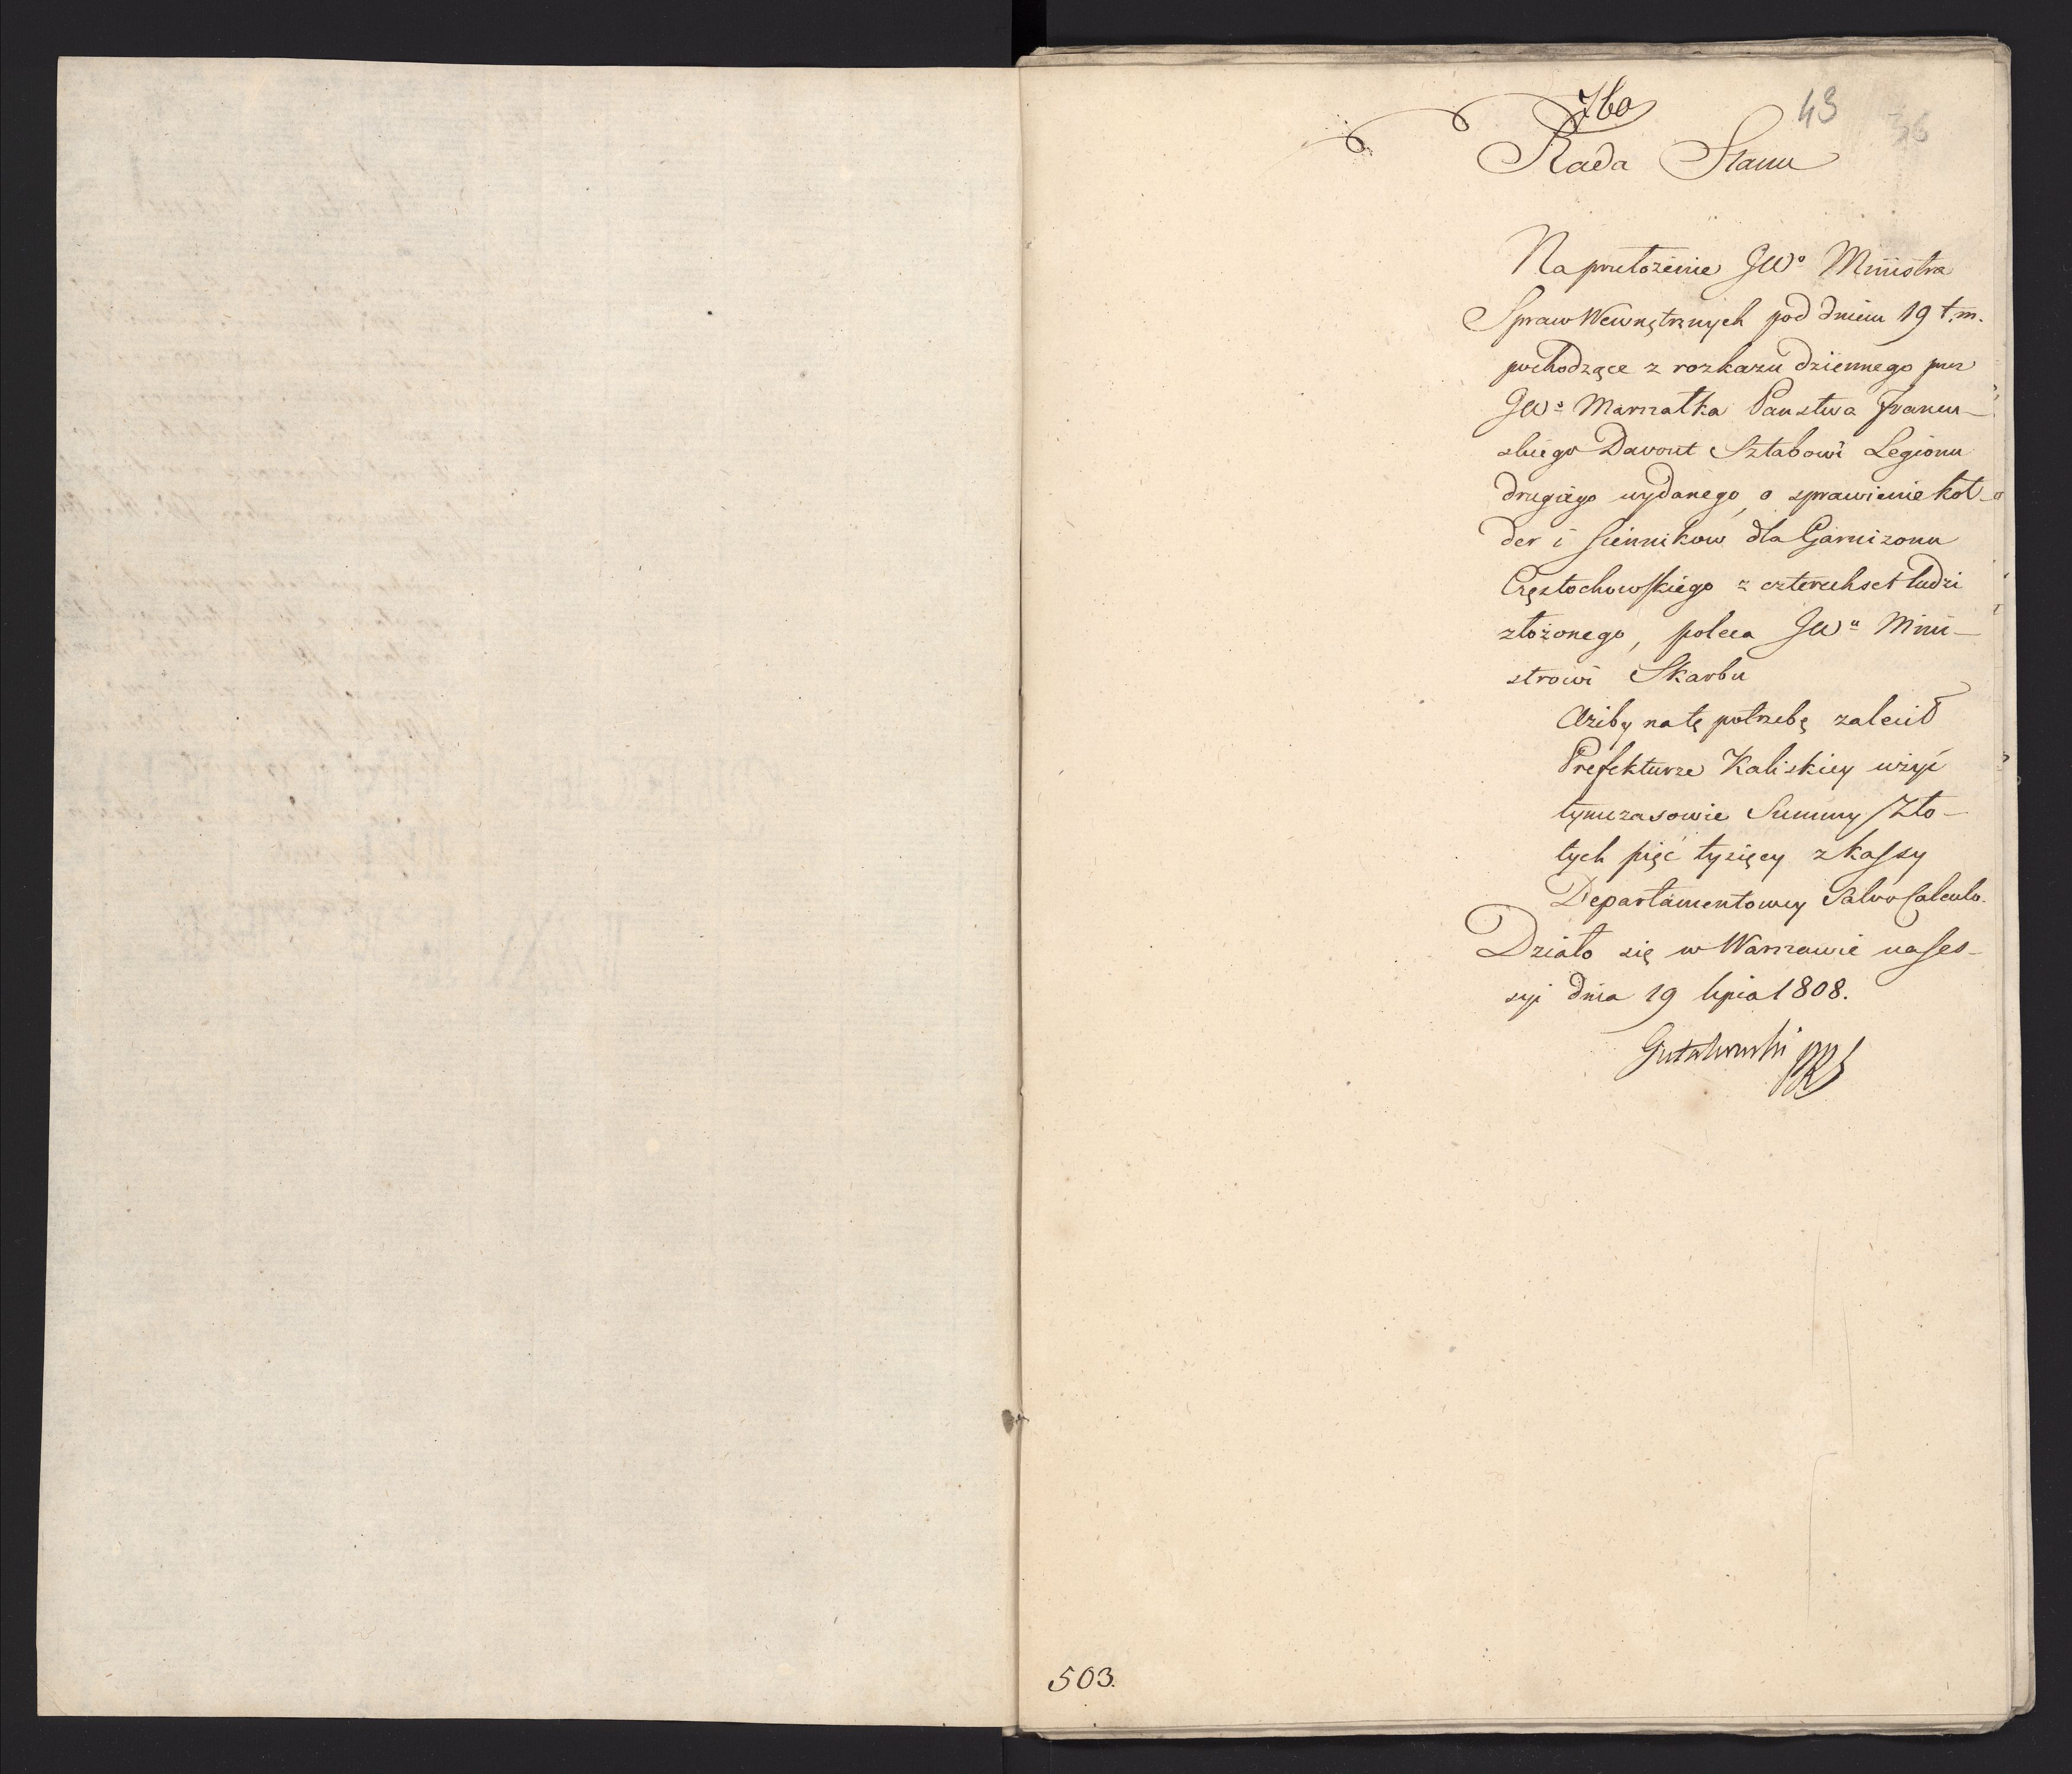 760
43
36
Rada Stanu
Na przełożenie JWo Ministra
Spraw Wewnętrznych pod dniem 19 t. m.
pochodzące z rozkazu dziennego przez
JWo Marszałka Państwa Francu-
skiego Davout Sztabowi Legionu
drugiego wydanego, o sprawienie koł-
der i sienników dla Garnizonu
Częstochowskiego z czterechset ludzi
złożonego, poleca JWu Mini-
strowi Skarbu
Ażeby na tę potrzebę zalecił
Prefekturze Kaliskiey użyć
tymczasowie Summy Zło-
tych pięć tysięcy z kassy
Departamentowey Salvo Calculo.
Działo się w Warszawie na ses-
syi dnia 19 lipca 1808.
Gutakowski PRS
503.